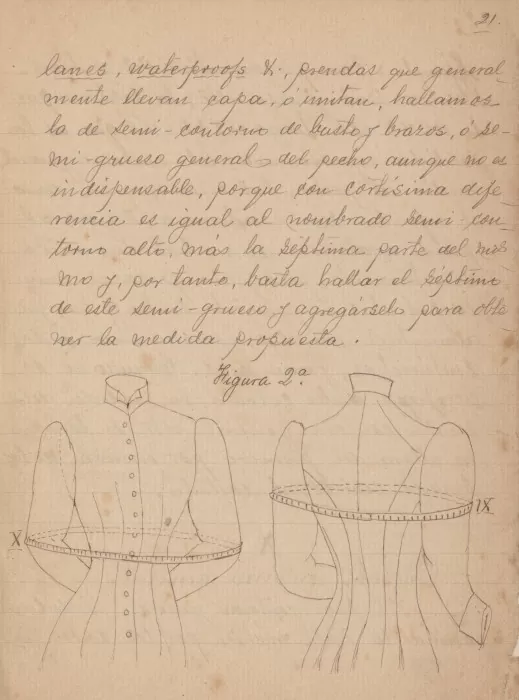 21.
lanes, waterproofs &., prendas que general
mente llevan capa, ó imitan, hallamos
la de semi-contorno de busto y brazos, ó se-
mi-grueso general del pecho, aunque no es
indispensable, porque con cortísima dife
rencia es igual al nombrado semi-con-
torno alto, más la séptima parte del mis
mo y, por tanto, basta hallar el séptimo
de este semi-grueso y agregárselo para obte
ner la medida propuesta.
Figura 2ª.
X
IX